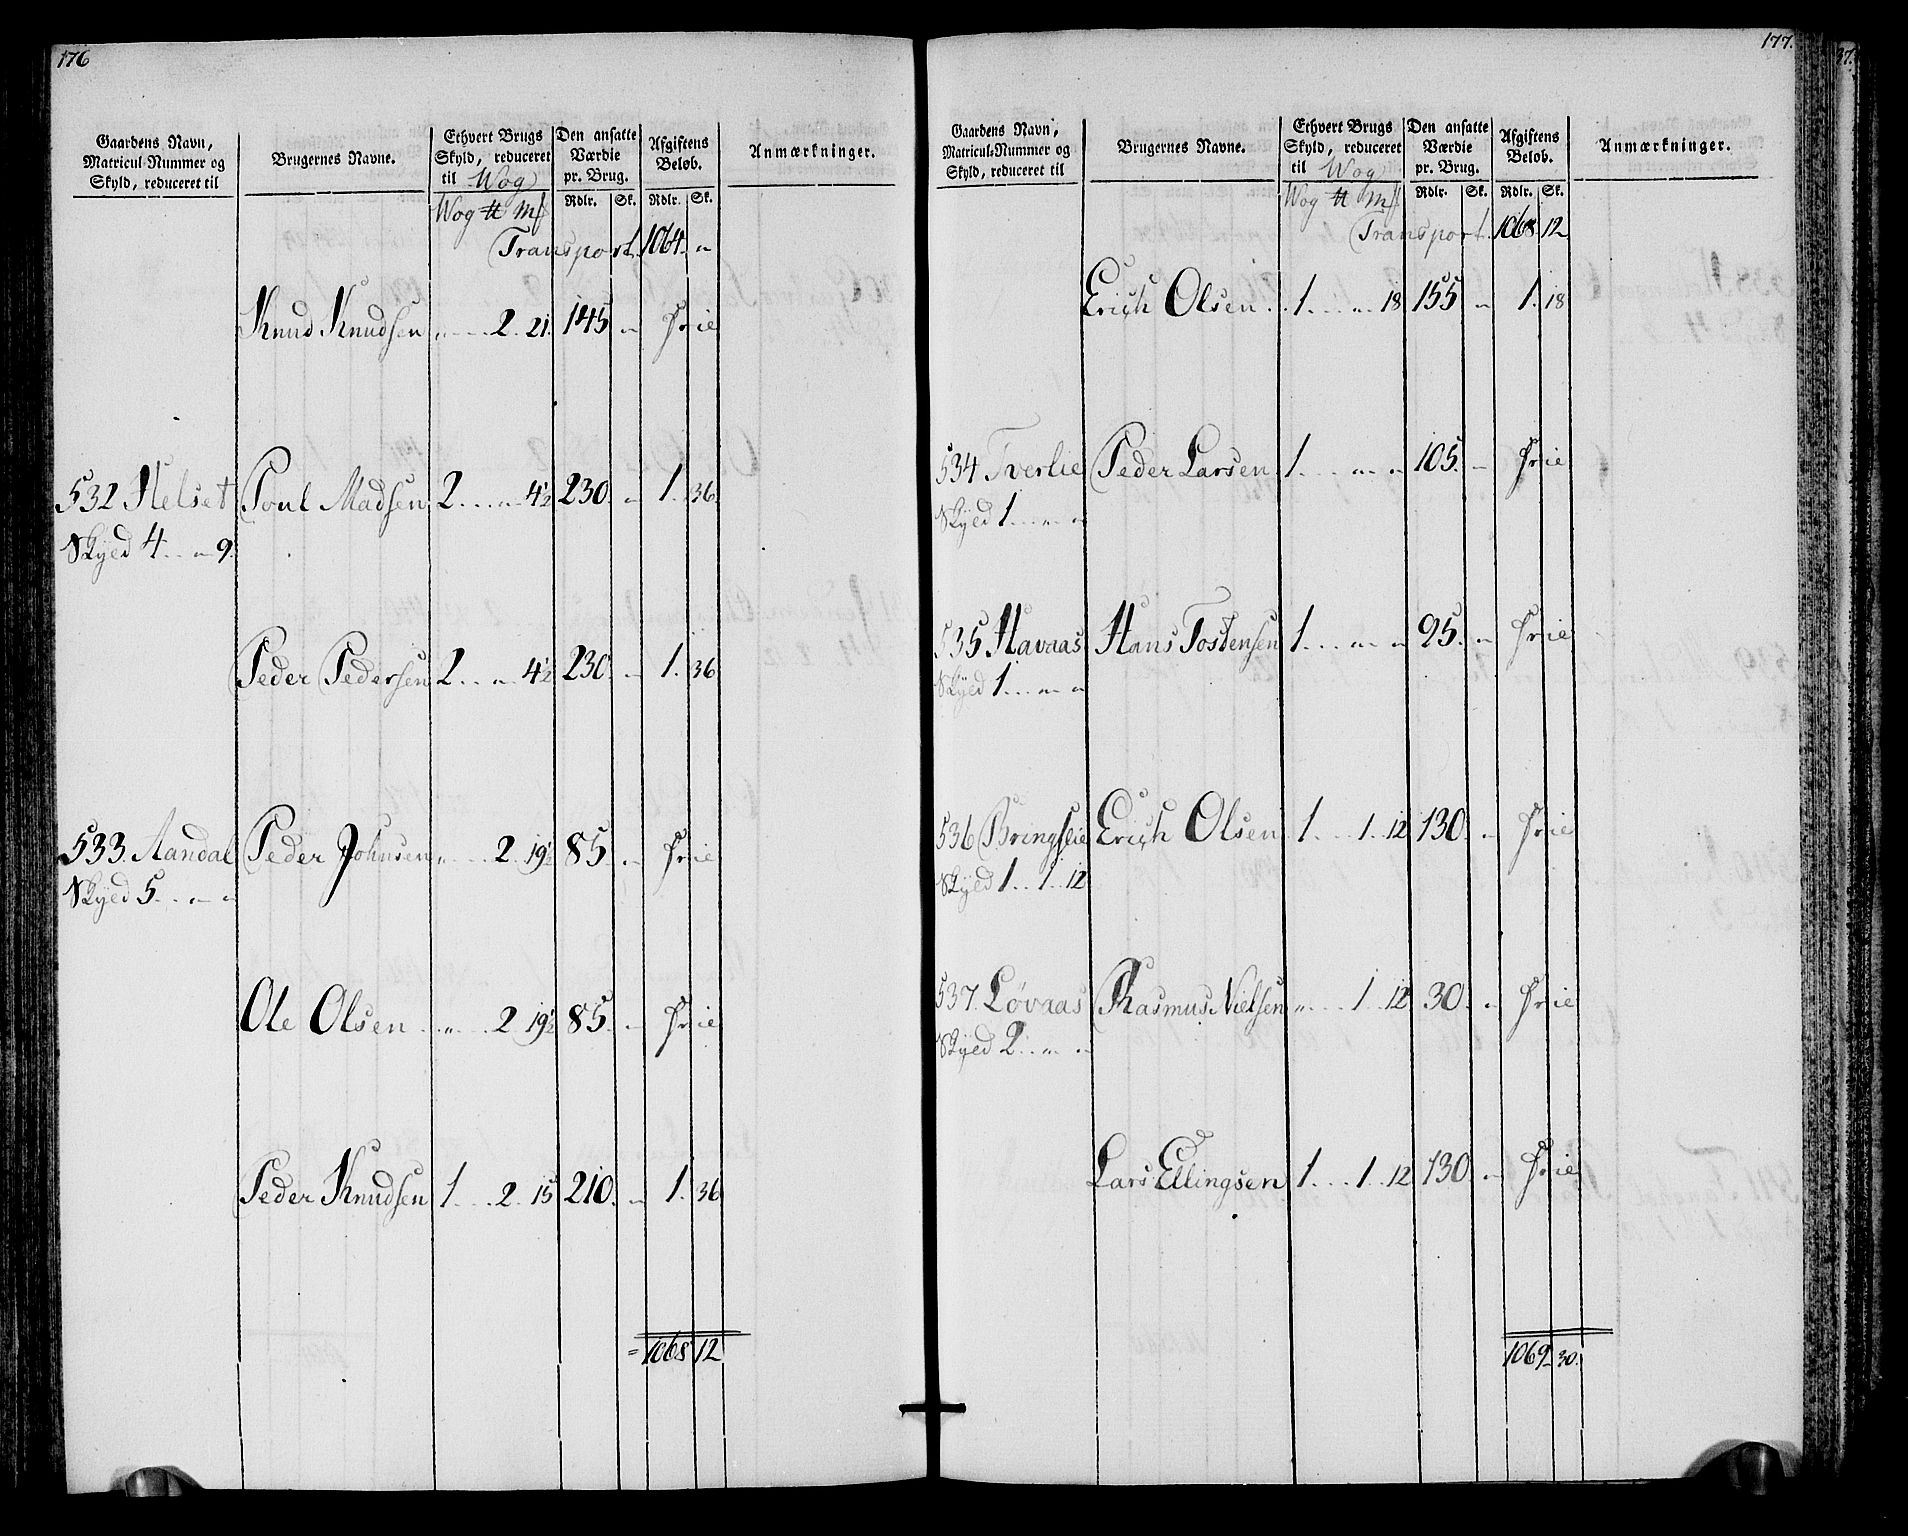 176
Gaardens Navn, Matricul-Nummer og Skyld, reduceret til
Brugernes Navne.
Ethvert Brugs Skyld, reduceret til Wog
Den ansatte Værdie pr. Brug.
Afgiftens Beløb.
Anmærkninger.
Wog ℔ Mſ Rdlr. Sk. Rdlr. Sk.
Transport. 1064. "
Knud Knudsen " . . . 2. 21. 145 " frie
532 Helset Poul Madsen 2 . . . " 4½ 230. " 1. 36
Skyed 4 . . " 9.
Peder Pedersen 2 . . . " 4½ 230 " 1. 36
533. Aandal Peder Johnsen " . . . 2. 19½ 85. " frie
Skyed 5 . . " "
Ole Olsen . . " . . . 2. 19½ 85. " frie
Peder Knudsen 1 . . . 2. 15 210. " 1. 36
= 1068 12
177.
Gaardens Navn, Matricul-Nummer og Skyld, reduceret til
Brugernes Navne.
Ethvert Brugs Skyld, reduceret til Wog
Den ansatte Værdie pr. Brug.
Afgiftens Beløb.
Anmærkninger.
Wog ℔ Mſ Rdlr. Sk. Rdlr. Sk.
Transport. 1068. 12
Erich Olsen . . 1 . . . " 18 155 " 1. 18
534 Tverlie Peder Larsen 1 . . . " " 105. " frie
Skyed 1 . . . " "
535 Havaas Hans Tostensen 1 . . . " " 95. " frie
Skyed 1 . . . " "
536 Bringslie Erich Olsen 1 . . . 1. 12 130. " frie
Skyed 1 . . 1 . . 12
537. Løvaas Rasmus Nielsen " . . . 1. 12 30. " frie
Skyed 2 . . " "
Lars Ellingsen 1 . . . 1. 12 130. " frie
1069 30.
37.